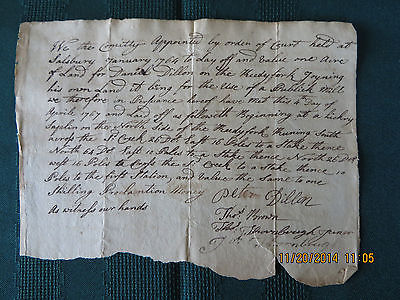 We the Comitty Appointed by order of Court held at
Salsbury January 1764 to Lay off and Value one Acre
of Land for Daniel Dillon on the Reedyfork Joyning
his own Land it being for the Use of a Publick Mill
we therefore in Pursiance hereof have Met this 4 Day of
April 1767 and Laid off as followeth Beginning at a hickory
Saplin on the North Side of the Reedyfork Runing South
across the Sd Creek 26 Dgt East 16 Poles to a Stake thence
North 64 Dgt East 10 Poles to a Stake thence North 26 Dgt
west 16 Poles to Cross the Sd Creek to a Stake thence 10
Poles to the first Station, and Value the Same to one
Shilling Proclamtion Money
As witness our hands
Peter Dillon
Thos Brown
Thornbrough
11/20/2014 11:05